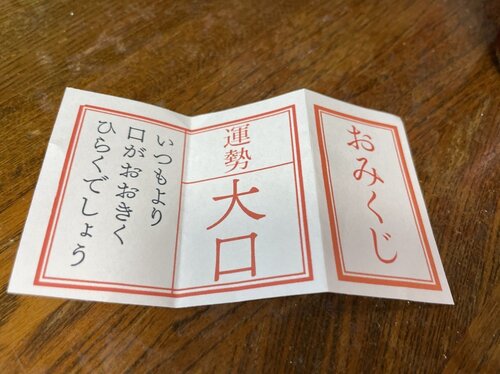 おみくじ
運勢
大口
いつもより
口がおおきく
ひらくでしょう